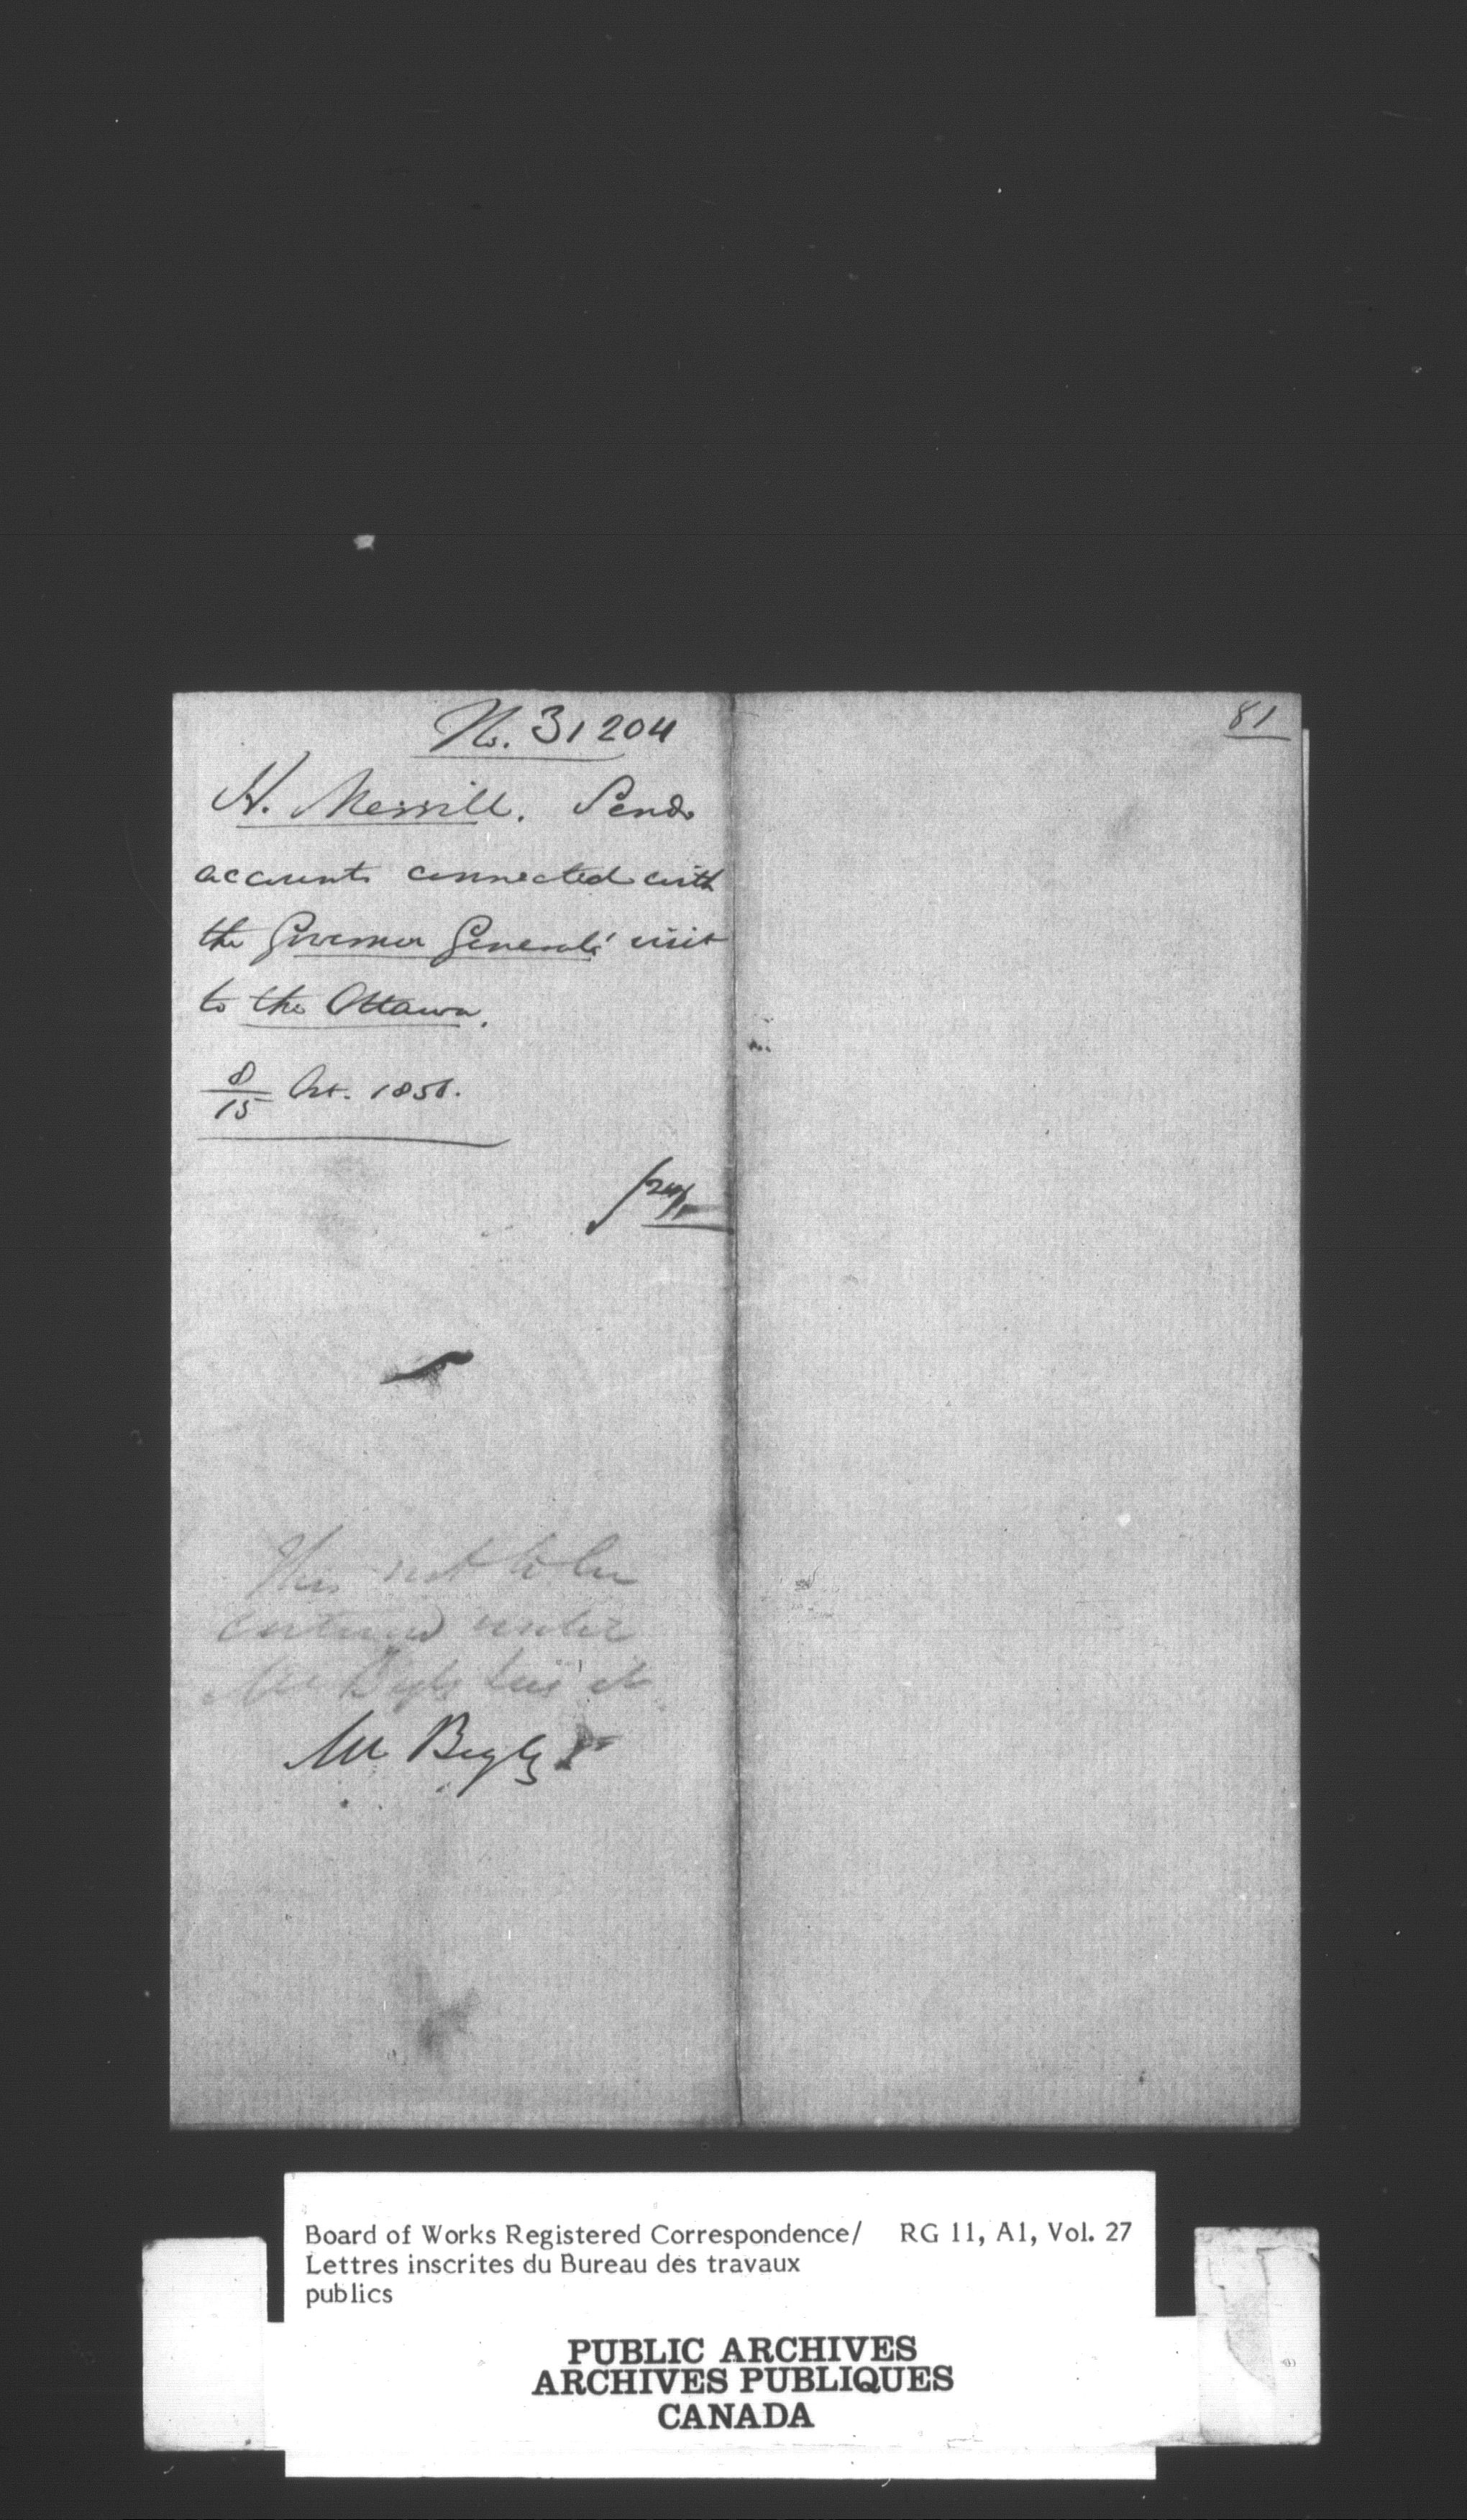 No. 31204
H. Merrill. Sends
accounts connected with
the Governor Generals' visit
to the Ottawa.
8/15 Oct. 1856.
81
This not to be
under
Mr Begly
Mr Begly
Board of Works Registered Correspondence/ RG 11, A1, Vol. 27
Lettres inscrites du Bureau des travaux
publics
PUBLIC ARCHIVES
ARCHIVES PUBLIQUES
CANADA